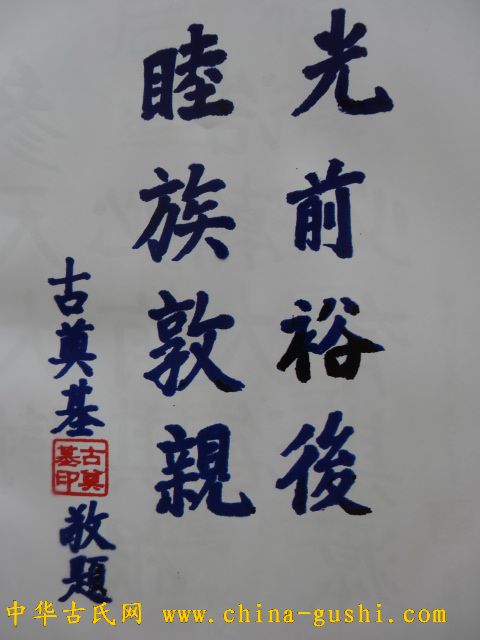 光前裕後
睦族敦親
古奠基
古奠
基印
敬題
中华古氏网 www.china-gushi.com